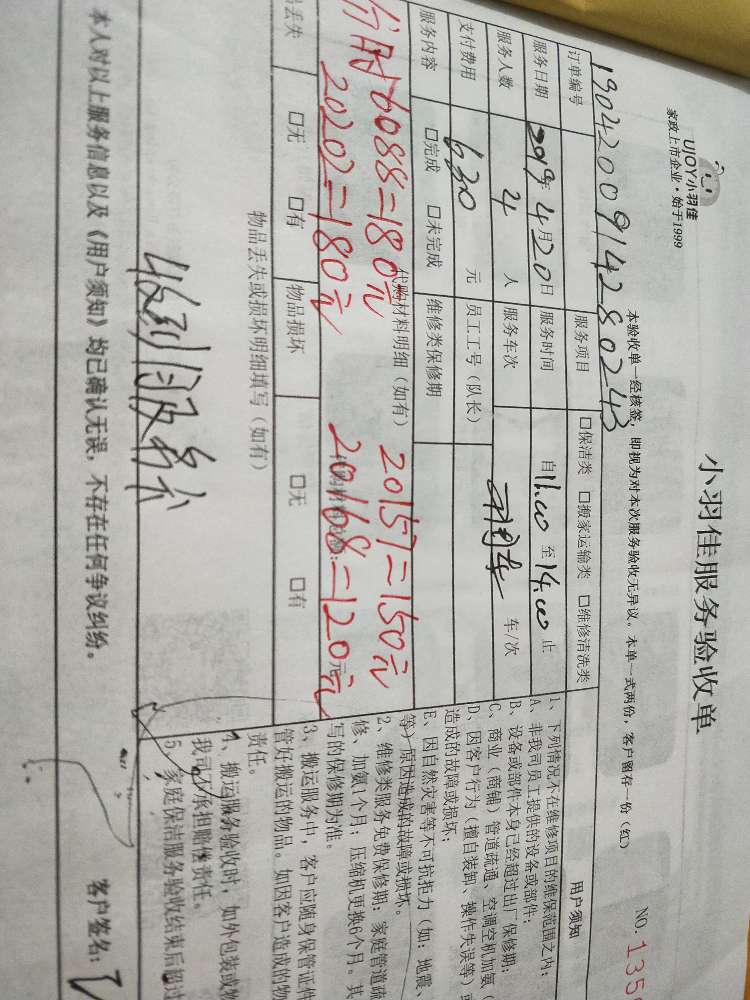 UJOY小羽佳
家政上市企业·始于1999
小羽佳服务验收单
NO: 135
本验收单一经核签，即视为对本次服务验收无异议。本单一式两份，客户留存一份（红）
订单编号 1904200914280243
服务项目 □保洁类 □搬家运输类 □维修清洗类
服务日期 2019年4月20日
服务时间 自11:00至14:00止
服务人数 4人
服务车次 车/次
支付费用 630元
员工工号（队长）
服务内容 □完成 □未完成
维修类保修期
代购材料明细（如有）
6088=180元 20157=150元
20202=180元 20168=120元
元
丢失 □无 □有 物品损坏 □无 □有
物品丢失或损坏明细填写（如有）
收到
本人对以上服务信息以及《用户须知》均已确认无误，不存在任何争议纠纷。
客户签名：
用户须知
1、下列情况不在维修项目的维保范围之内：
A、非我司员工提供的设备或部件；
B、设备或部件本身已经超过出厂保修期；
C、商业（商铺）管道疏通、空调空机加氨（
D、因客户行为（擅自装卸、操作失误等）或
造成的故障或损坏；
E、因自然灾害等不可抗拒力（如：地震、
等）原因造成的故障或损坏。
2、维修类服务免费保修期：家庭管道疏
修、加氨1个月；压缩机更换6个月。其
写的保修期为准。
3、搬运服务中，客户应随身保管证件
管好搬运的物品。如因客户造成的物
责任。
4、搬运服务验收时，如外包装或物
我司不承担赔偿责任。
5、家庭保洁服务验收结束后超过